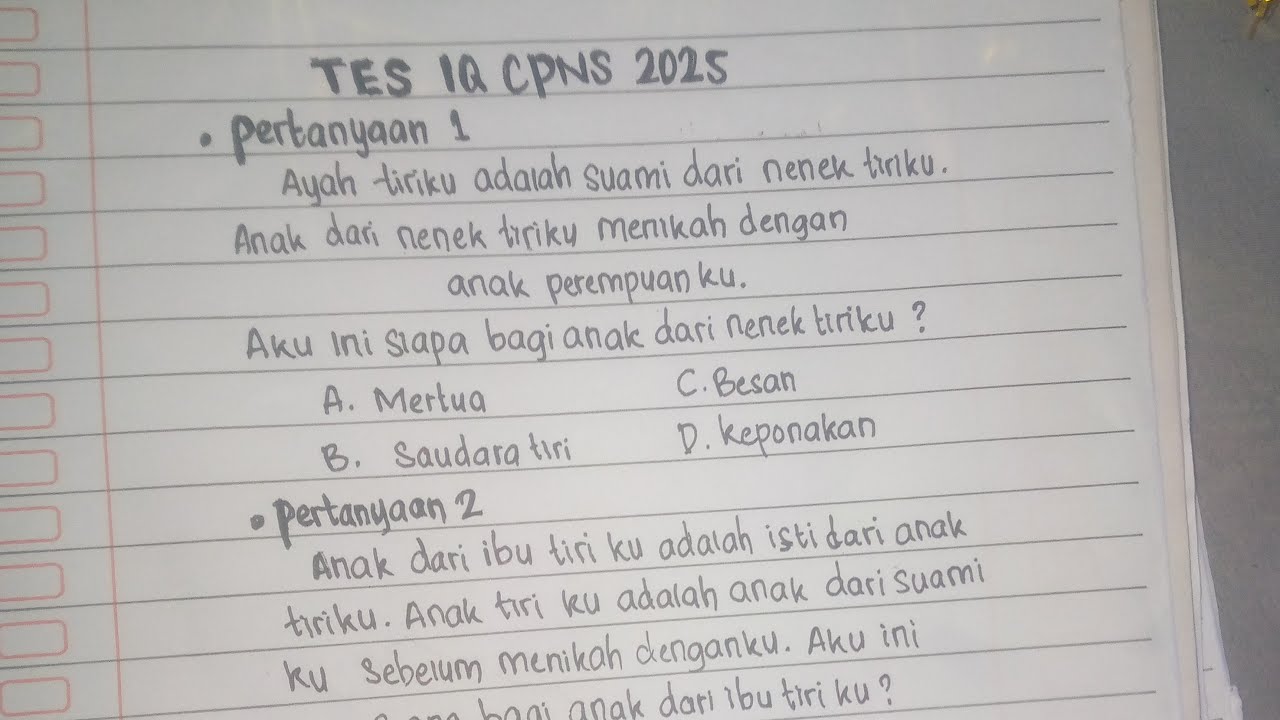 TES IQ CPNS 2025
• Pertanyaan 1
Ayah tiriku adalah suami dari nenek tiriku.
Anak dari nenek tiriku menikah dengan
anak perempuanku.
Aku ini siapa bagi anak dari nenek tiriku?
A. Mertua C. Besan
B. Saudara tiri D. keponakan
• Pertanyaan 2
Anak dari ibu tiri ku adalah isti dari anak
tiriku. Anak tiri ku adalah anak dari suami
ku sebelum menikah denganku. Aku ini
bagi anak dari ibu tiri ku?